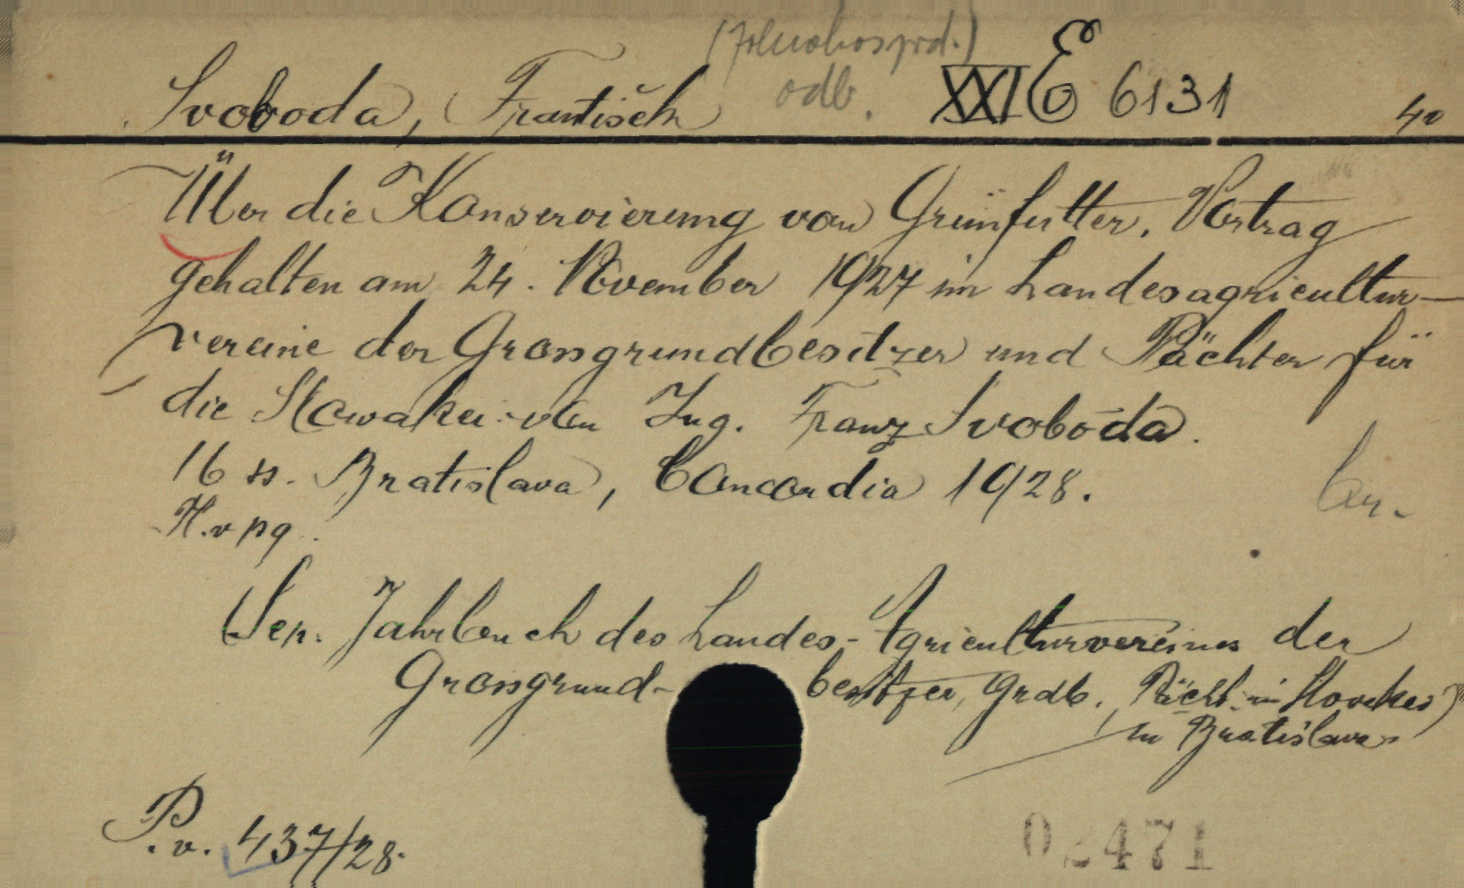 (zemědhospod.)
Svoboda, František odb. XXI E 6131 4°
Über die Konservierung von Grünfutter. Vortrag
gehalten am 24. November 1927 im Landesagricultur-
vereine der Grossgrundbesitzer und Pächter für
die Slowakei von Ing. Franz Svoboda.
16 ss. Bratislava, Concordia 1928.
br.
H.v pg.
(Sep. Jahrbuch des Landes-Agriculturvereines der
Grossgrund- besitzer, Grdb. Pächt. in Slovakei)
in Bratislava
P.v. 437/28.
02471